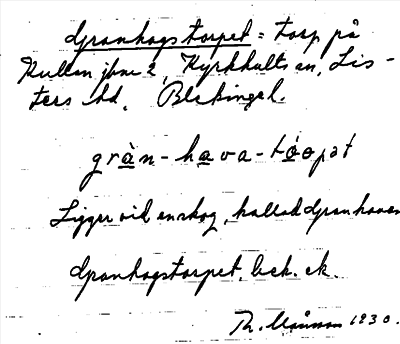 Granhagstorpet = torp på
Kullen jbno 2, Kyrkhults sn, Lis-
ters hd, Blekinge l.
gràn-hava-tóopət
Ligger vid en skog, kallad Granhaven
Granhagstorpet, beck. ek.
Th. 1930.